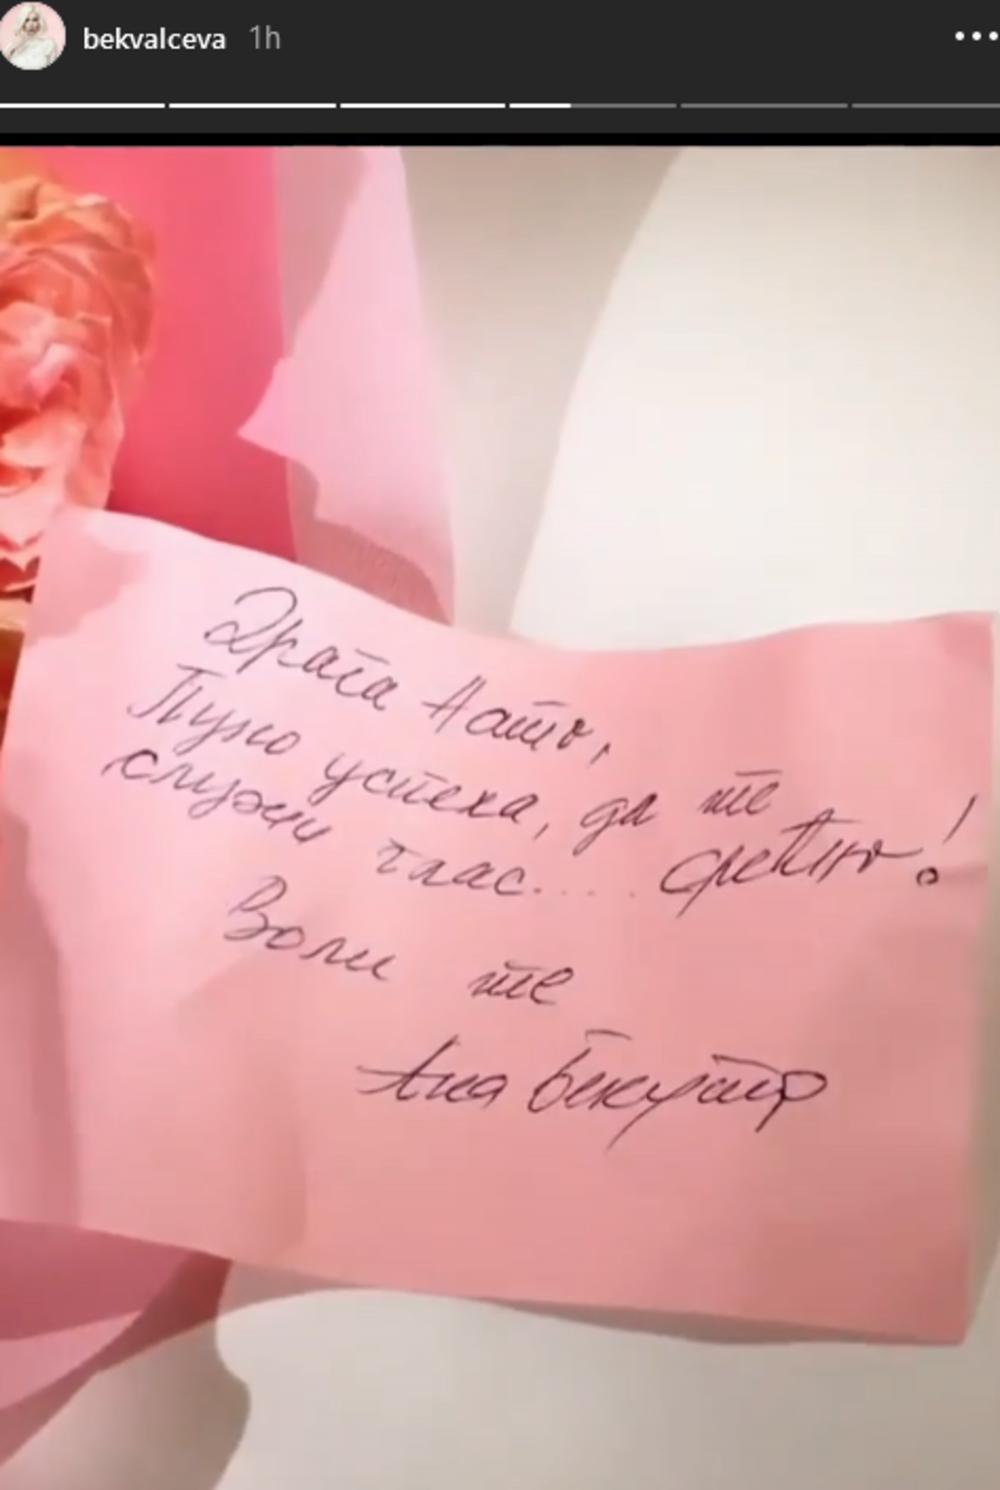 bekvalceva 1h
Драга Нато,
Пуно успеха, да те
служи глас.... Срећно!
Воли те
Ана Бекута